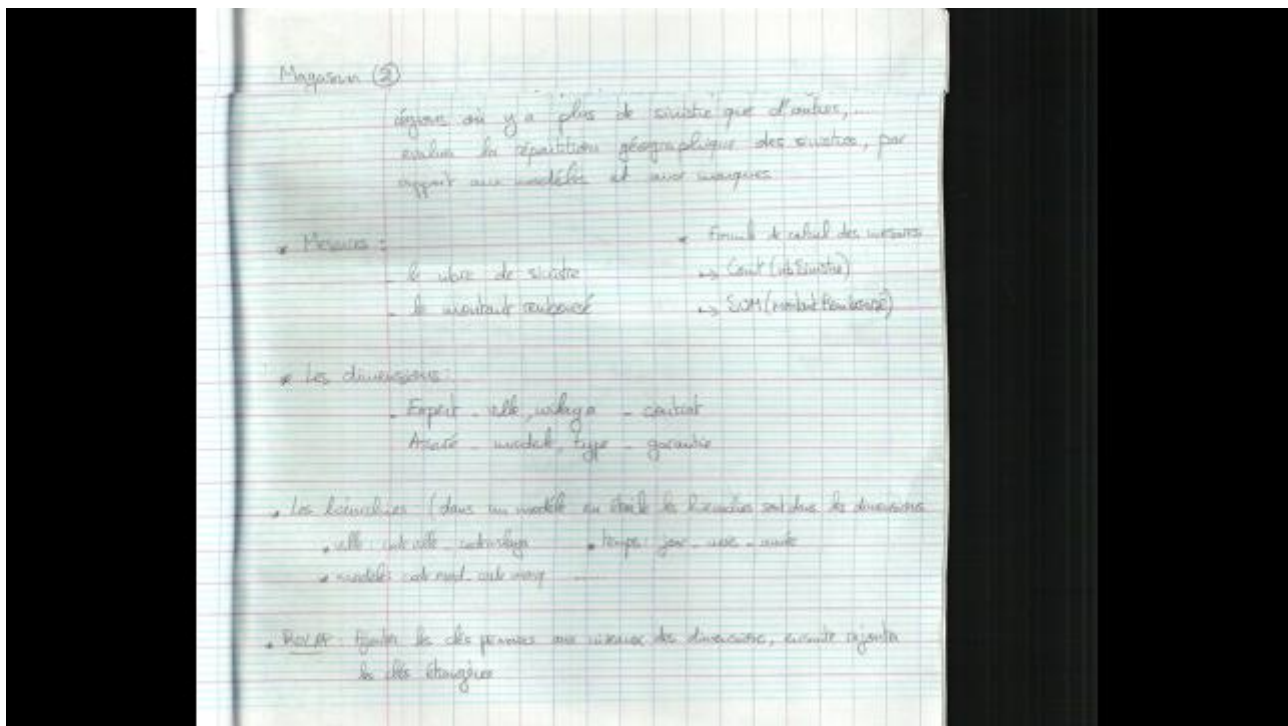 Magasin ②
régions où y a plus de sinistre que d'autres, ....
évaluer la répartition géographique des sinistres, par
rapport aux modèles et aux marques
* Mesures :
* Formule de calcul des mesures
- le nbre de sinistre
↳ Count (nbSinistre)
- le montant remboursé
↳ SOM (montant Remboursé)
* Les dimensions :
- Expert - ville, wilaya - contrat
Assuré - modèle, type - garantie
* Les hiérarchies (dans un modèle en étoile les hiérarchies sont dans les dimensions
* ville : code ville - code wilaya * temps : jour - mois - année
* modèle : code mod - code marq ......
* ROLAP : Ajouter les clés primaires aux niveaux des dimensions, ensuite rajouter
les clés étrangères